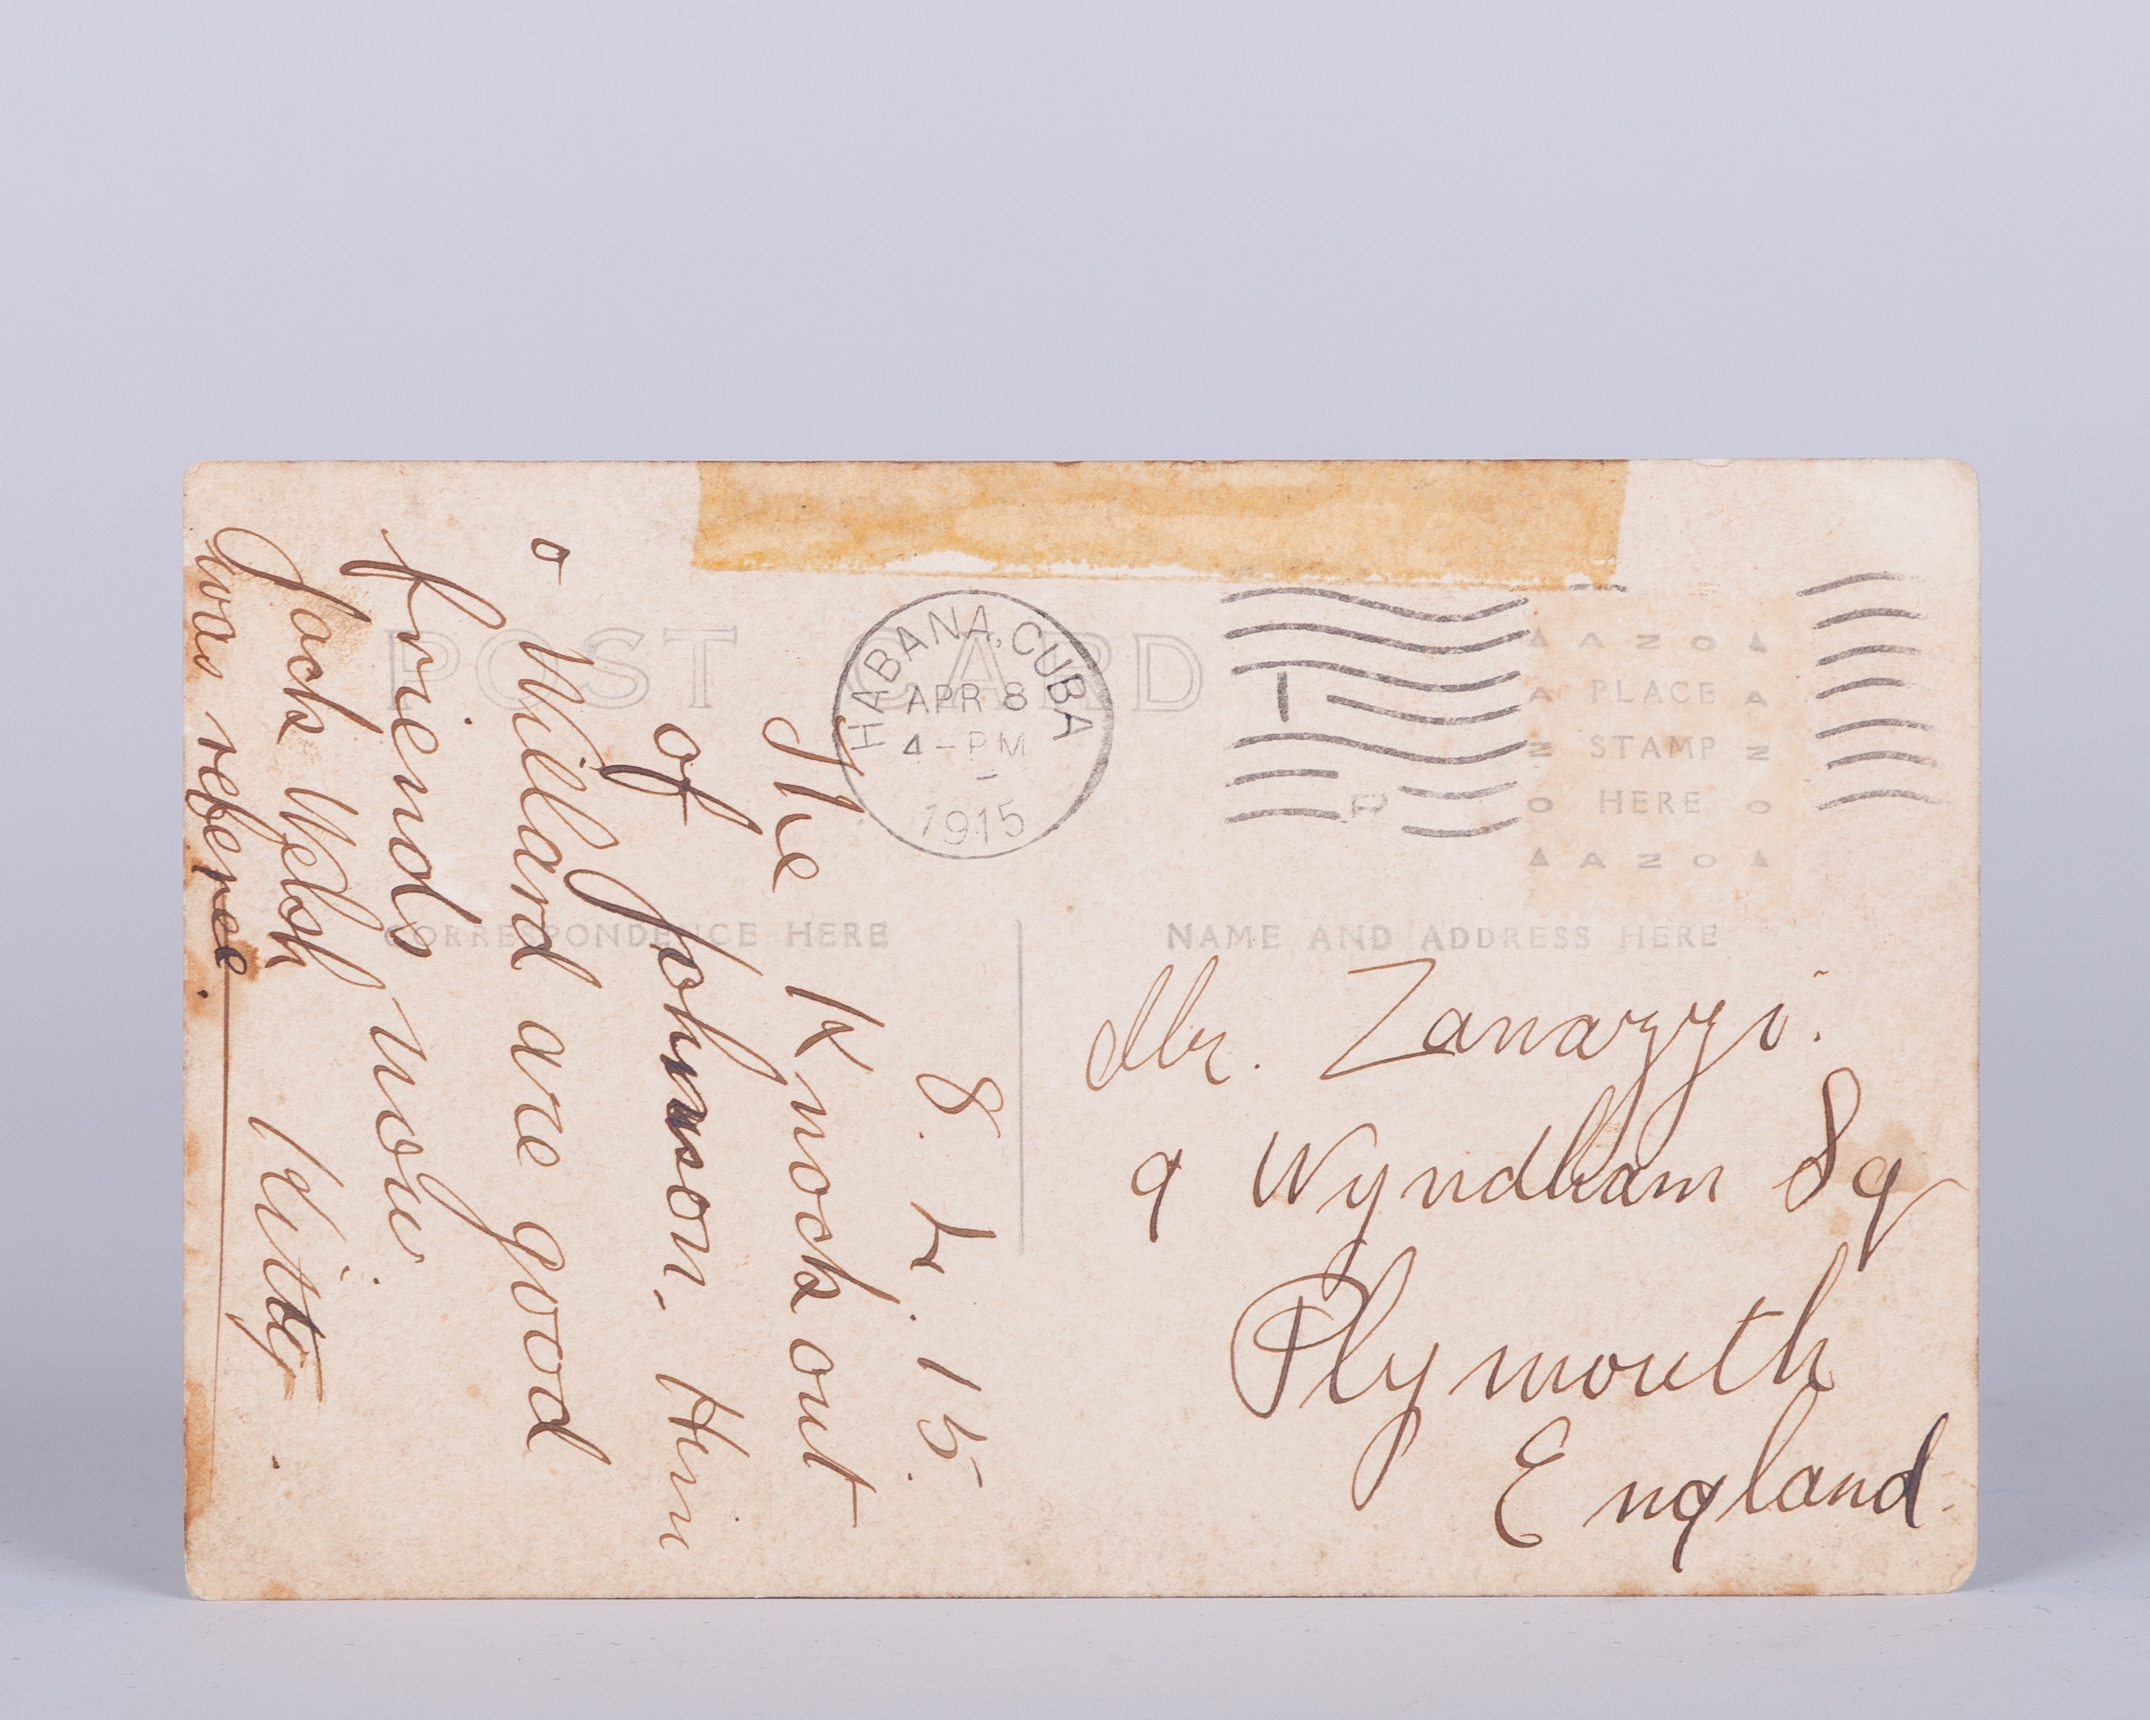 POST CARD
HABANA, CUBA
APR 8
4-PM
1915
AZO
PLACE
STAMP
HERE
AZO
CORRESPONDENCE HERE
NAME AND ADDRESS HERE
8.4.15.
The Knock out
of Johnson. Him
o Willard are good
friends now.
Jack Welsh Kitty.
was referee.
Mr. Zanazzi.
9 Wyndham Sq
Plymouth
England.